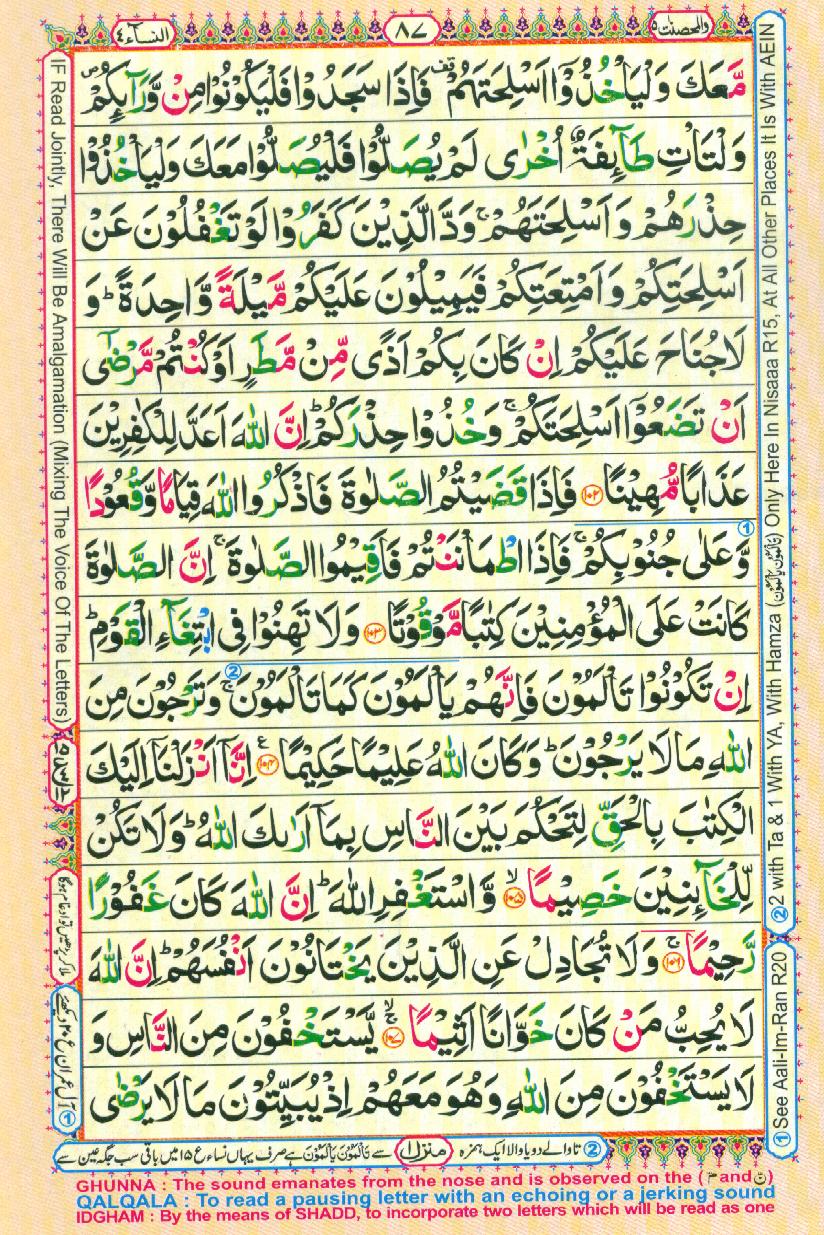 والمحصنت ۵
۸۷
النسآء ۴
مَّعَكَ وَلْيَاْخُذُوْۤا اَسْلِحَتَهُمْ ۫ فَاِذَا سَجَدُوْا فَلْيَكُوْنُوْا مِنْ وَّرَآىِٕكُمْ ۪
وَلْتَاْتِ طَآىِٕفَةٌ اُخْرٰى لَمْ يُصَلُّوْا فَلْيُصَلُّوْا مَعَكَ وَلْيَاْخُذُوْا
حِذْرَهُمْ وَاَسْلِحَتَهُمْ ۚ وَدَّ الَّذِيْنَ كَفَرُوْا لَوْ تَغْفُلُوْنَ عَنْ
اَسْلِحَتِكُمْ وَاَمْتِعَتِكُمْ فَيَمِيْلُوْنَ عَلَيْكُمْ مَّيْلَةً وَّاحِدَةً ؕ وَ
لَا جُنَاحَ عَلَيْكُمْ اِنْ كَانَ بِكُمْ اَذًى مِّنْ مَّطَرٍ اَوْ كُنْتُمْ مَّرْضٰۤى
اَنْ تَضَعُوْۤا اَسْلِحَتَكُمْ ۚ وَخُذُوْا حِذْرَكُمْ ؕ اِنَّ اللّٰهَ اَعَدَّ لِلْكٰفِرِيْنَ
عَذَابًا مُّهِيْنًا ۱۰۲ فَاِذَا قَضَيْتُمُ الصَّلٰوةَ فَاذْكُرُوا اللّٰهَ قِيَامًا وَّقُعُوْدًا
وَّعَلٰى جُنُوْبِكُمْ ۚ فَاِذَا اطْمَاْنَنْتُمْ فَاَقِيْمُوا الصَّلٰوةَ ۚ اِنَّ الصَّلٰوةَ
كَانَتْ عَلَى الْمُؤْمِنِيْنَ كِتٰبًا مَّوْقُوْتًا ۱۰۳ وَلَا تَهِنُوْا فِى ابْتِغَآءِ الْقَوْمِ ؕ
اِنْ تَكُوْنُوْا تَاْلَمُوْنَ فَاِنَّهُمْ يَاْلَمُوْنَ كَمَا تَاْلَمُوْنَ ۚ وَتَرْجُوْنَ مِنَ
اللّٰهِ مَا لَا يَرْجُوْنَ ؕ وَكَانَ اللّٰهُ عَلِيْمًا حَكِيْمًا ۱۰۴ اِنَّاۤ اَنْزَلْنَاۤ اِلَيْكَ
الْكِتٰبَ بِالْحَقِّ لِتَحْكُمَ بَيْنَ النَّاسِ بِمَاۤ اَرٰىكَ اللّٰهُ ؕ وَلَا تَكُنْ
لِّلْخَآىِٕنِيْنَ خَصِيْمًا ۱۰۵ وَّاسْتَغْفِرِ اللّٰهَ ؕ اِنَّ اللّٰهَ كَانَ غَفُوْرًا
رَّحِيْمًا ۱۰۶ وَلَا تُجَادِلْ عَنِ الَّذِيْنَ يَخْتَانُوْنَ اَنْفُسَهُمْ ؕ اِنَّ اللّٰهَ
لَا يُحِبُّ مَنْ كَانَ خَوَّانًا اَثِيْمًا ۱۰۷ يَّسْتَخْفُوْنَ مِنَ النَّاسِ وَ
لَا يَسْتَخْفُوْنَ مِنَ اللّٰهِ وَهُوَ مَعَهُمْ اِذْ يُبَيِّتُوْنَ مَا لَا يَرْضٰى
② 2 with Ta & 1 With YA, With Hamza (تَاْلَمُوْنَ يَاْلَمُوْنَ) Only Here In Nisaaa R15, At All Other Places It Is With AEIN
① See Aali-Im-Ran R20
IF Read Jointly, There Will Be Amalgamation (Mixing The Voice Of The Letters)
ملا کر پڑھیں تو ادغام ہوگا
① آل عمران ع ۲۰ دیکھئے
② تا والے دو یا والا ایک ہمزہ
منزل ۱
سے تَاْلَمُوْنَ يَاْلَمُوْنَ ہے صرف یہاں نساء ع ۱۵ میں باقی سب جگہ عین سے
GHUNNA : The sound emanates from the nose and is observed on the ( مّ and نّ )
QALQALA : To read a pausing letter with an echoing or a jerking sound
IDGHAM : By the means of SHADD, to incorporate two letters which will be read as one